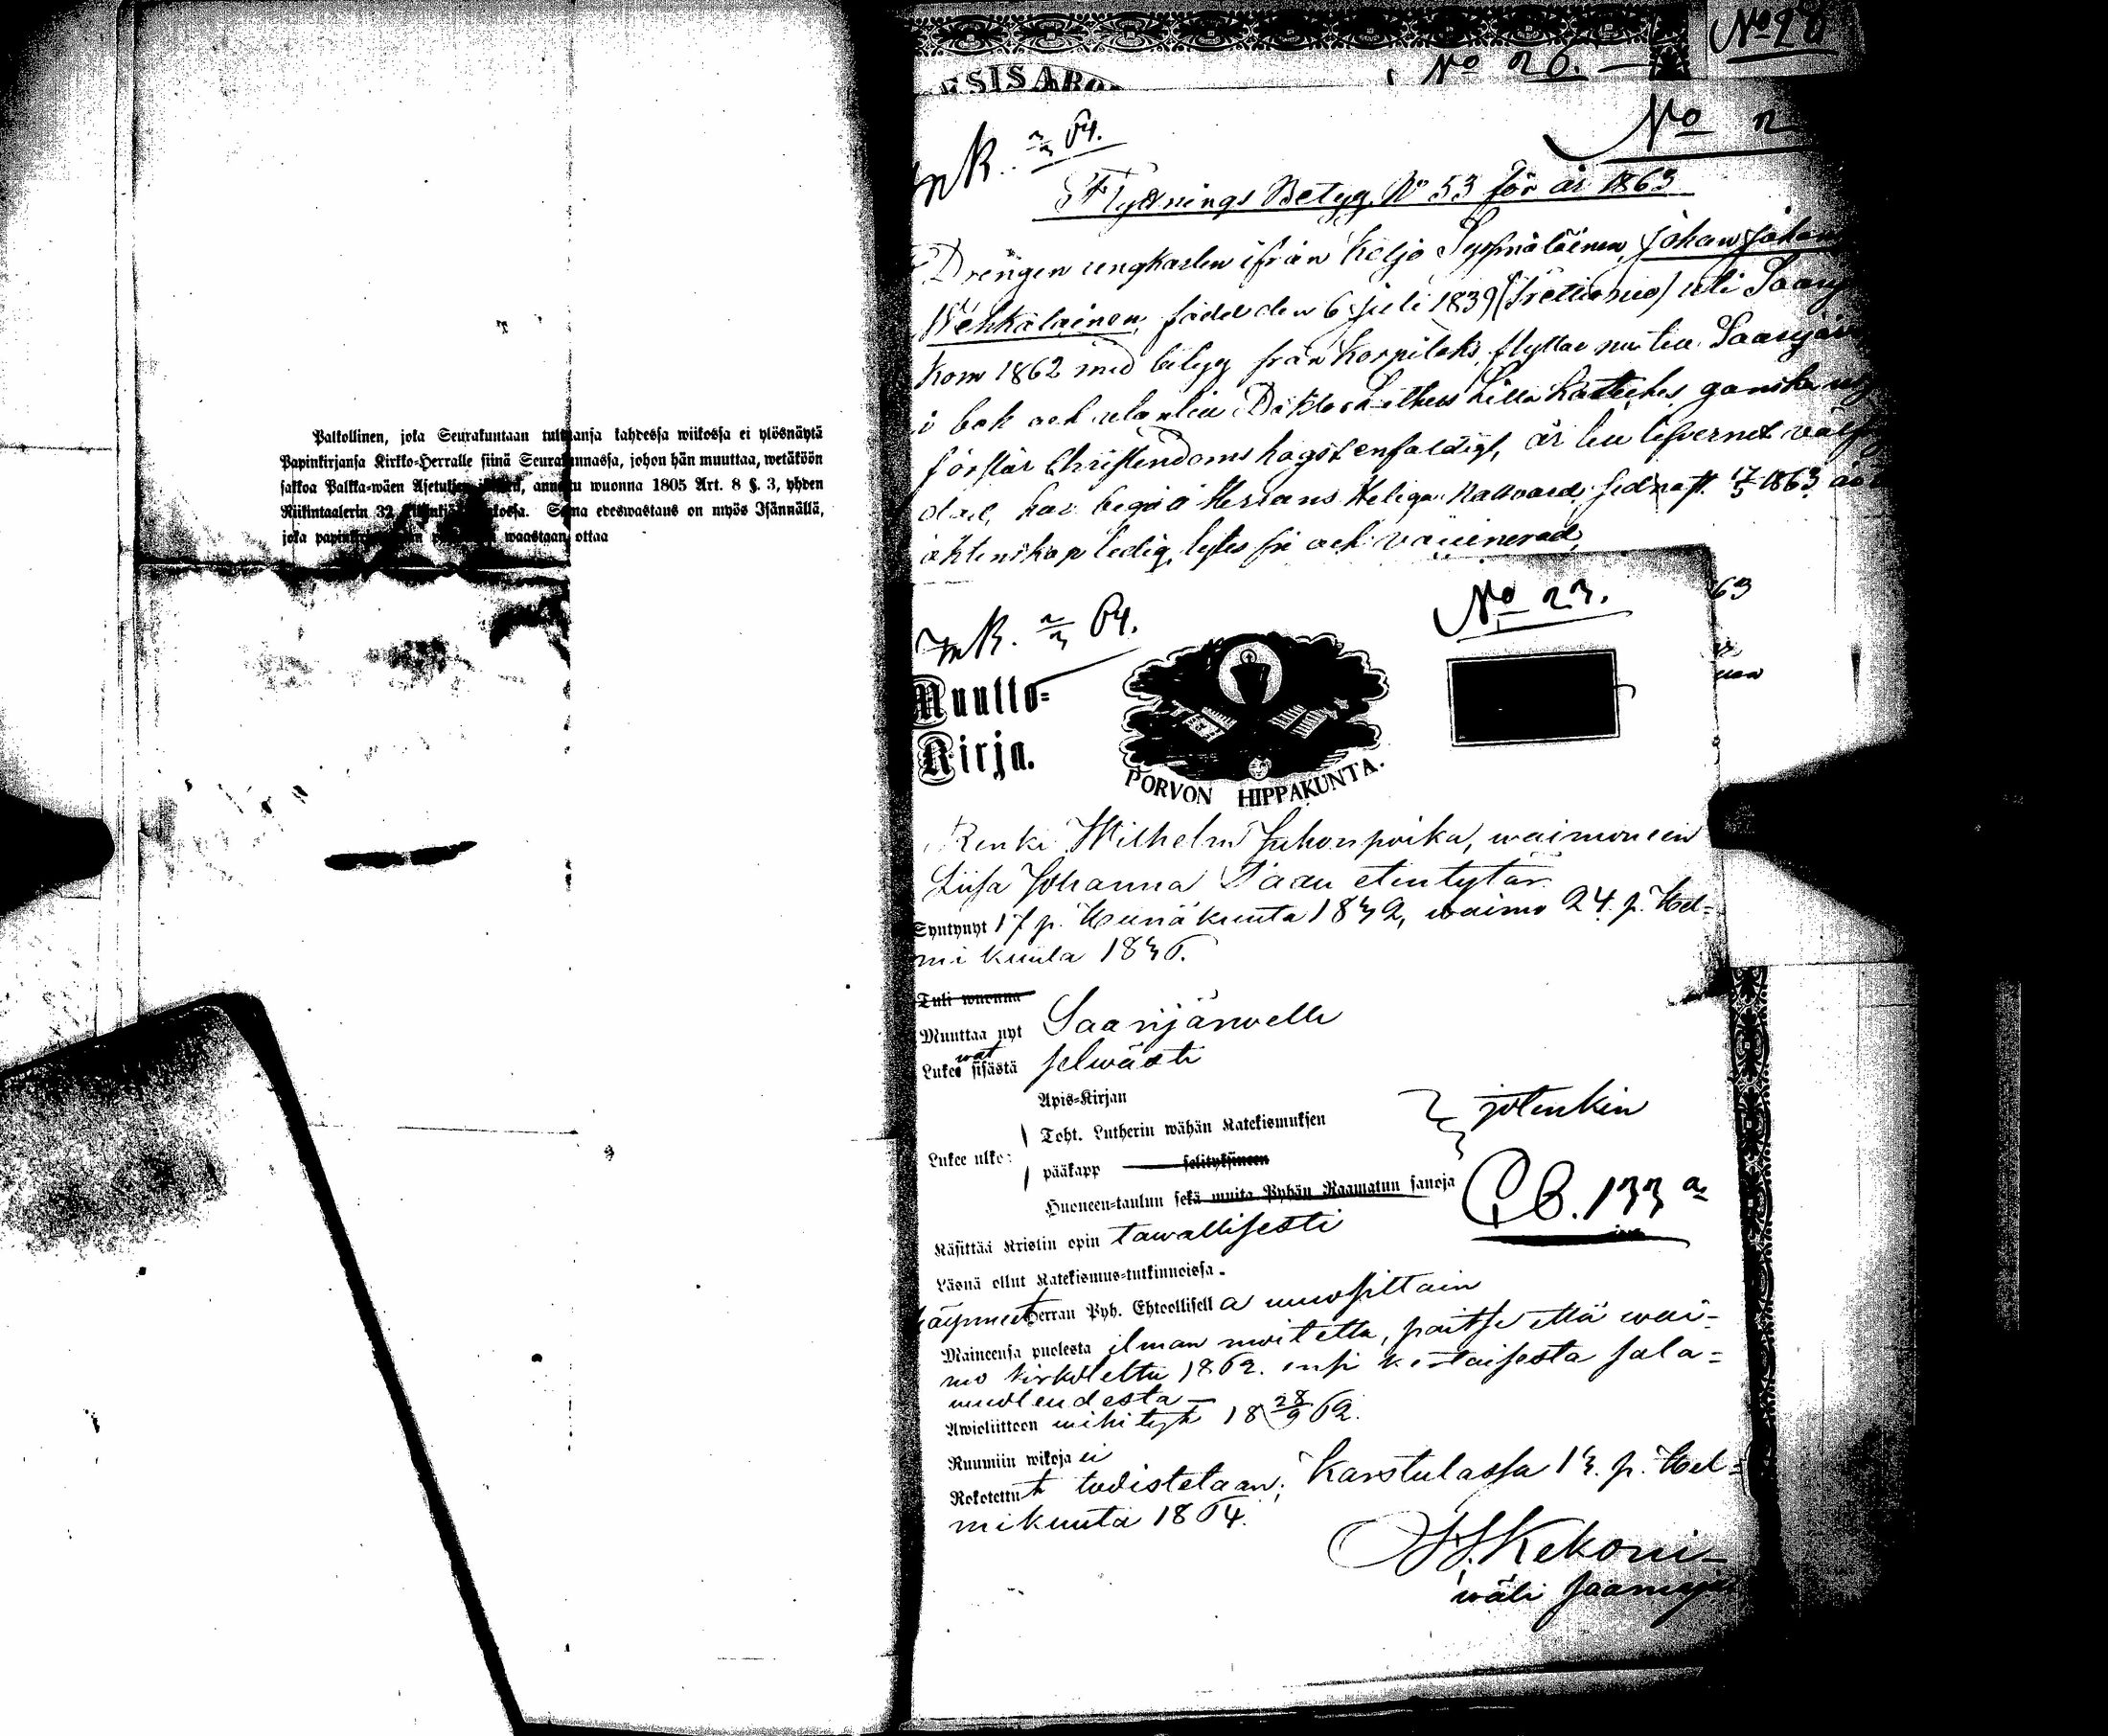 Palkollinen, joka Seurakuntaan tultuansa kahdessa wiikossa ei ylösnäytä
Papinkirjansa Kirkko-Herralle siinä Seurakunnassa, johon hän muuttaa, wetäköön
sakkoa Palkka-wäen Asetuksen, annettu wuonna 1805 Art. 8 §. 3, yhden
Riikintaalerin 32 kossa. Sama edeswastaus on myös Isännällä,
joka waastaan ottaa
No 28
No 26.
No 2
mR. 2/3 64.
Flyttnings Betyg No 53 för år 1863
Drengen ungkarlen ifrån Koljo Johan Johan
Wehkalainen, född den 6 juli 1839 (trettionio) uti Saarij
kom 1862 med betyg från Korpilaks, flyttar nu till Saarijär
i bok och utantill Doktor Luthers Lilla Kateches ganska
förstår Christendoms högst enfaldigt, är till lefvernet välf
dad, har begå Herrans Heliga Nattvard, sednast 17/5 1863,
äktenskap ledig, lytes fri och vaccinerad,
63
mR. 2/3 64.
No 23.
Muutto-
Kirja.
PORVON HIPPAKUNTA.
Renki Wilhelm Juhonpoika, waimoneen
Liisa Johanna Taawetintytär
Syntynyt 17 p. Heinäkuuta 1832, waimo 24. p. Hel-
mikuuta 1836.
Tuli wuonna
Muuttaa nyt Saarijärwelle
Lukewat sisästä selwästi
Apis-Kirjan
Toht. Lutherin wähän Katekismuksen } jotenkin
Lukee ulkoa
pääkapp selityksineen
Huoneen-taulun sekä muita Pyhän Raamatun sanoja
C.B. 133 a
Käsittää Kristin opin tawallisesti
Läsnä ollut Katekismus-tutkinnoissa.
käyneet Herran Pyh. Ehtoollisella wuosittain
Maineensa puolesta ilman moitetta, paitse että wai-
mo kirkotettu 1862. ensi kertaisesta sala-
wuoteudesta —
Awioliittoon wihityt 18 28/9 62.
Ruumiin wikoja ei
Rokotettut todistetaan; Karstulassa 13. p. Hel-
mikuuta 1864.
Kekoni
wäli Saarnaja